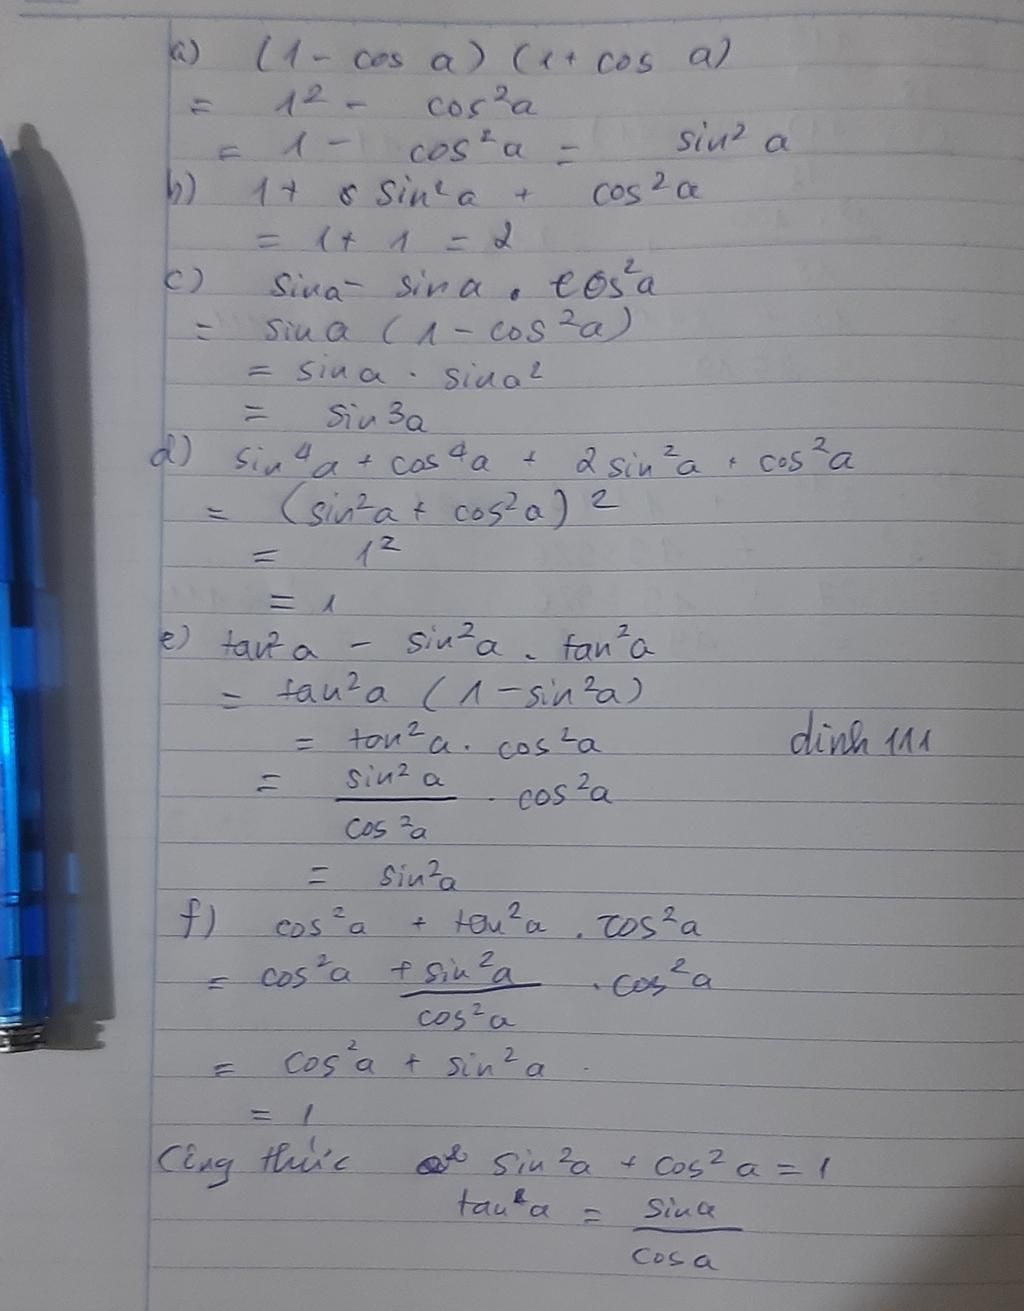 a) (1 - cos a) (1 + cos a)
= 1² - cos²a
= 1 - cos²a = sin² a
b) 1 + sin²a + cos²a
= 1 + 1 = 2
c) sina - sin a . cos²a
= sin a (1 - cos²a)
= sin a . sina²
= sin3a
d) sin⁴a + cos⁴a + 2 sin²a . cos²a
= (sin²a + cos²a)²
= 1²
= 1
e) tan²a - sin²a . tan²a
= tan²a (1 - sin²a)
= tan²a . cos²a
dinh 111
= sin²a / cos²a . cos²a
= sin²a
f) cos²a + tan²a . cos²a
= cos²a + sin²a / cos²a . cos²a
= cos²a + sin²a .
= 1
Công thức sin²a + cos²a = 1
tan a = sina / cosa